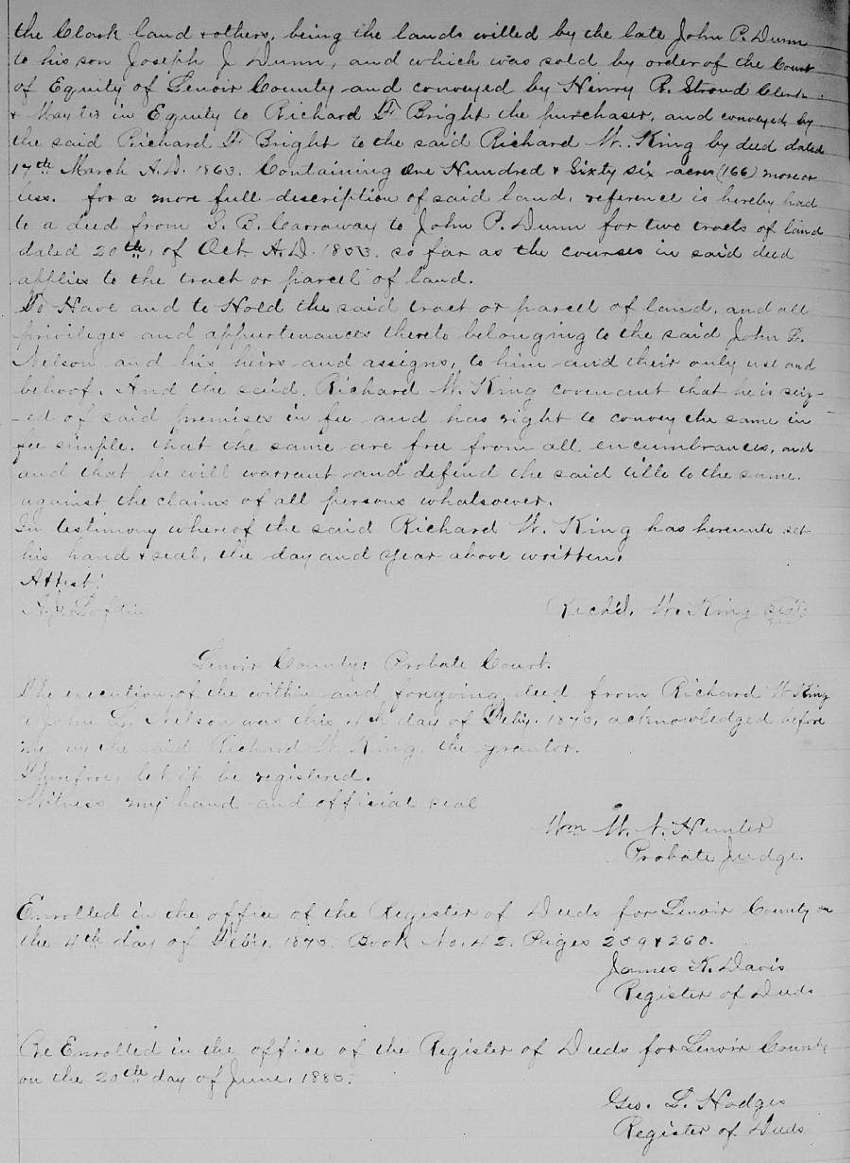 the Clark land & others, being the lands willed by the late John P. Dunn
to his son Joseph J Dunn, and which was sold by order of the Court
of Equity of Lenoir County and conveyed by Henry R. Stroud Clerk
& in Equity to Richard F Bright the purchaser, and conveyed by
the said Richard F Bright to the said Richard W. King by deed dated
17th March A.D. 1863. Containing One Hundred & Sixty six acres (166) more or
less. for a more full description of said land, reference is hereby had
to a deed from B. Carroway to John P. Dunn for two tracts of land
dated 20th, of Oct A.D. so far as the courses in said deed
applies to the tract or parcel of land.
To Have and to Hold the said tract or parcel of land, and all
privileges and appurtenances thereto belonging to the said John L.
Nelson and his heirs and assigns, to him and their only use and
behoof. And the said, Richard W. King covenant that he is seiz-
-ed of said premises in fee and has right to convey the same in
fee simple. that the same are free from all encumbrances, and
and that he will warrant and defend the said title to the same.
against the claims of all persons whatsoever.
In testimony whereof the said Richard W. King has hereunto set
his hand & seal, the day and year above written.
Attest!
Loftin
Rich'd. W. King
Lenoir County: Probate Court.
The execution of the within and foregoing deed from Richard W King
John L. Nelson was this day of acknowledged before
me by the said Richard W. King, the grantor.
Therefore, let it be registered.
Witness my hand and official seal
Wm W. N. Hunter
Probate Judge.
Enrolled in the office of the Register of Deeds for Lenoir County on
the 4th day of Feb'y. Book No. 42. Pages 259 & 260.
James K. Davis
Register of Deeds
Re Enrolled in the office of the Register of Deeds for Lenoir County
on the 20th day of June,
Geo. L. Hodges
Register of Deeds